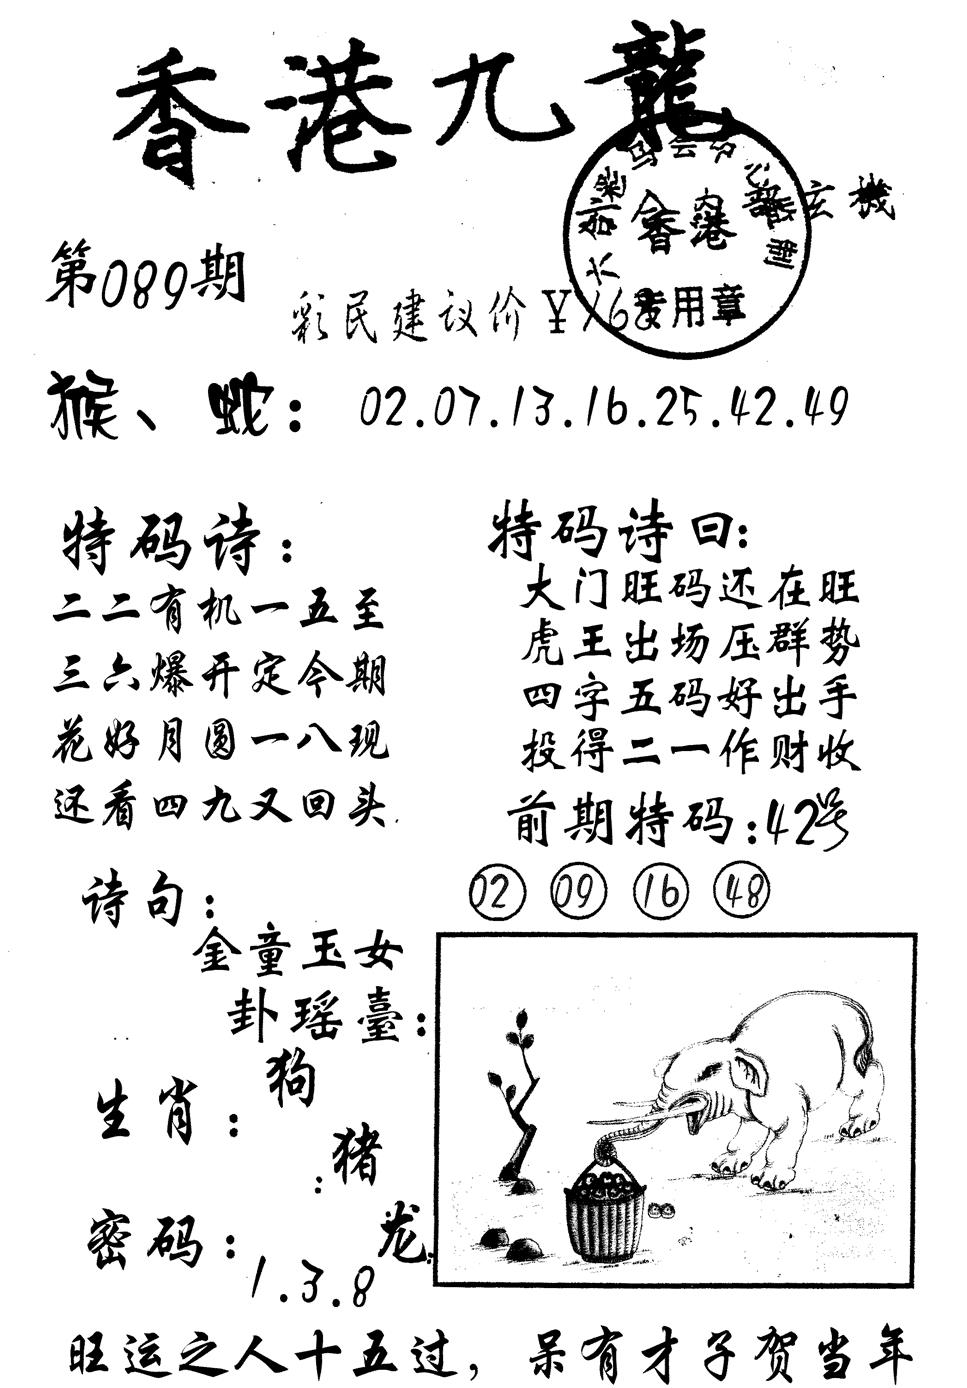 香港九龍
内部玄機
香港
专用章
第089期
彩民建议价￥168
猴、蛇：02.07.13.16.25.42.49
特码诗：
二二有机一五至
三六爆开定今期
花好月圆一八现
还看四九又回头.
特码诗曰：
大门旺码还在旺
虎王出场压群势
四字五码好出手
投得二一作财收
前期特码：42号
02 09 16 48
诗句：
金童玉女
卦瑶臺：
生肖：
狗
猪
龙
密码：
1.3.8
旺运之人十五过，呆有才子贺当年